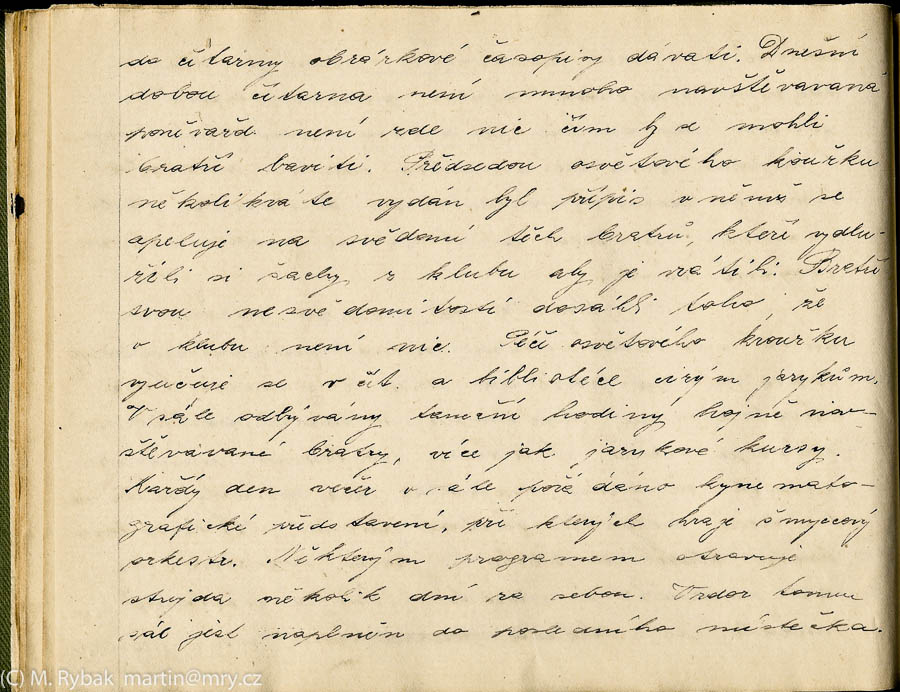 do čítárny obrázkové časopisy dávati. Dnešní
dobou čítarna není mnoho navštěvavaná
poněvadž není zde nic čím by se mohli
bratři baviti. Předsedou osvětového kroužku
několikráte vydán byl přípis v němž se
apeluje na svědomí těch bratrů, kteří vydlu-
žili si šachy z klubu aby je vrátili. Bratři
svou nesvědomitostí dosáhli toho, že
v klubu není nic. Péčí osvětového kroužku
vyučuje se v čít. a bibliotéce cizým jazykům.
V sále odbývány taneční hodiny hojně nav-
štěvávané bratry, více jak jazykové kursy.
Každý den večer v sále pořádáno kynemato-
grafické představení, při kterých hraje smyčcový
orkestr. Některým programem otravuje
strejda několik dní za sebou. Vzdor tomu
sál jest naplněn do posledního místečka.
(C) M. Rybak martin@mry.cz